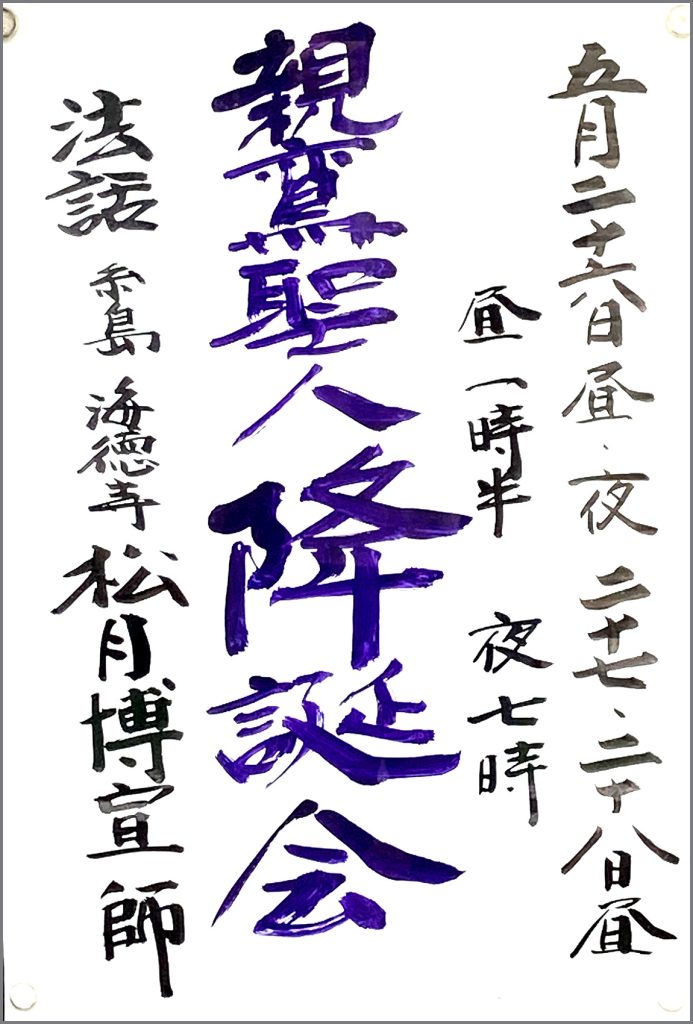 五月二十六日昼、夜 二十七、二十八日昼
昼一時半 夜七時
親鸞聖人降誕会
法話 糸島 海徳寺 松月博宣師